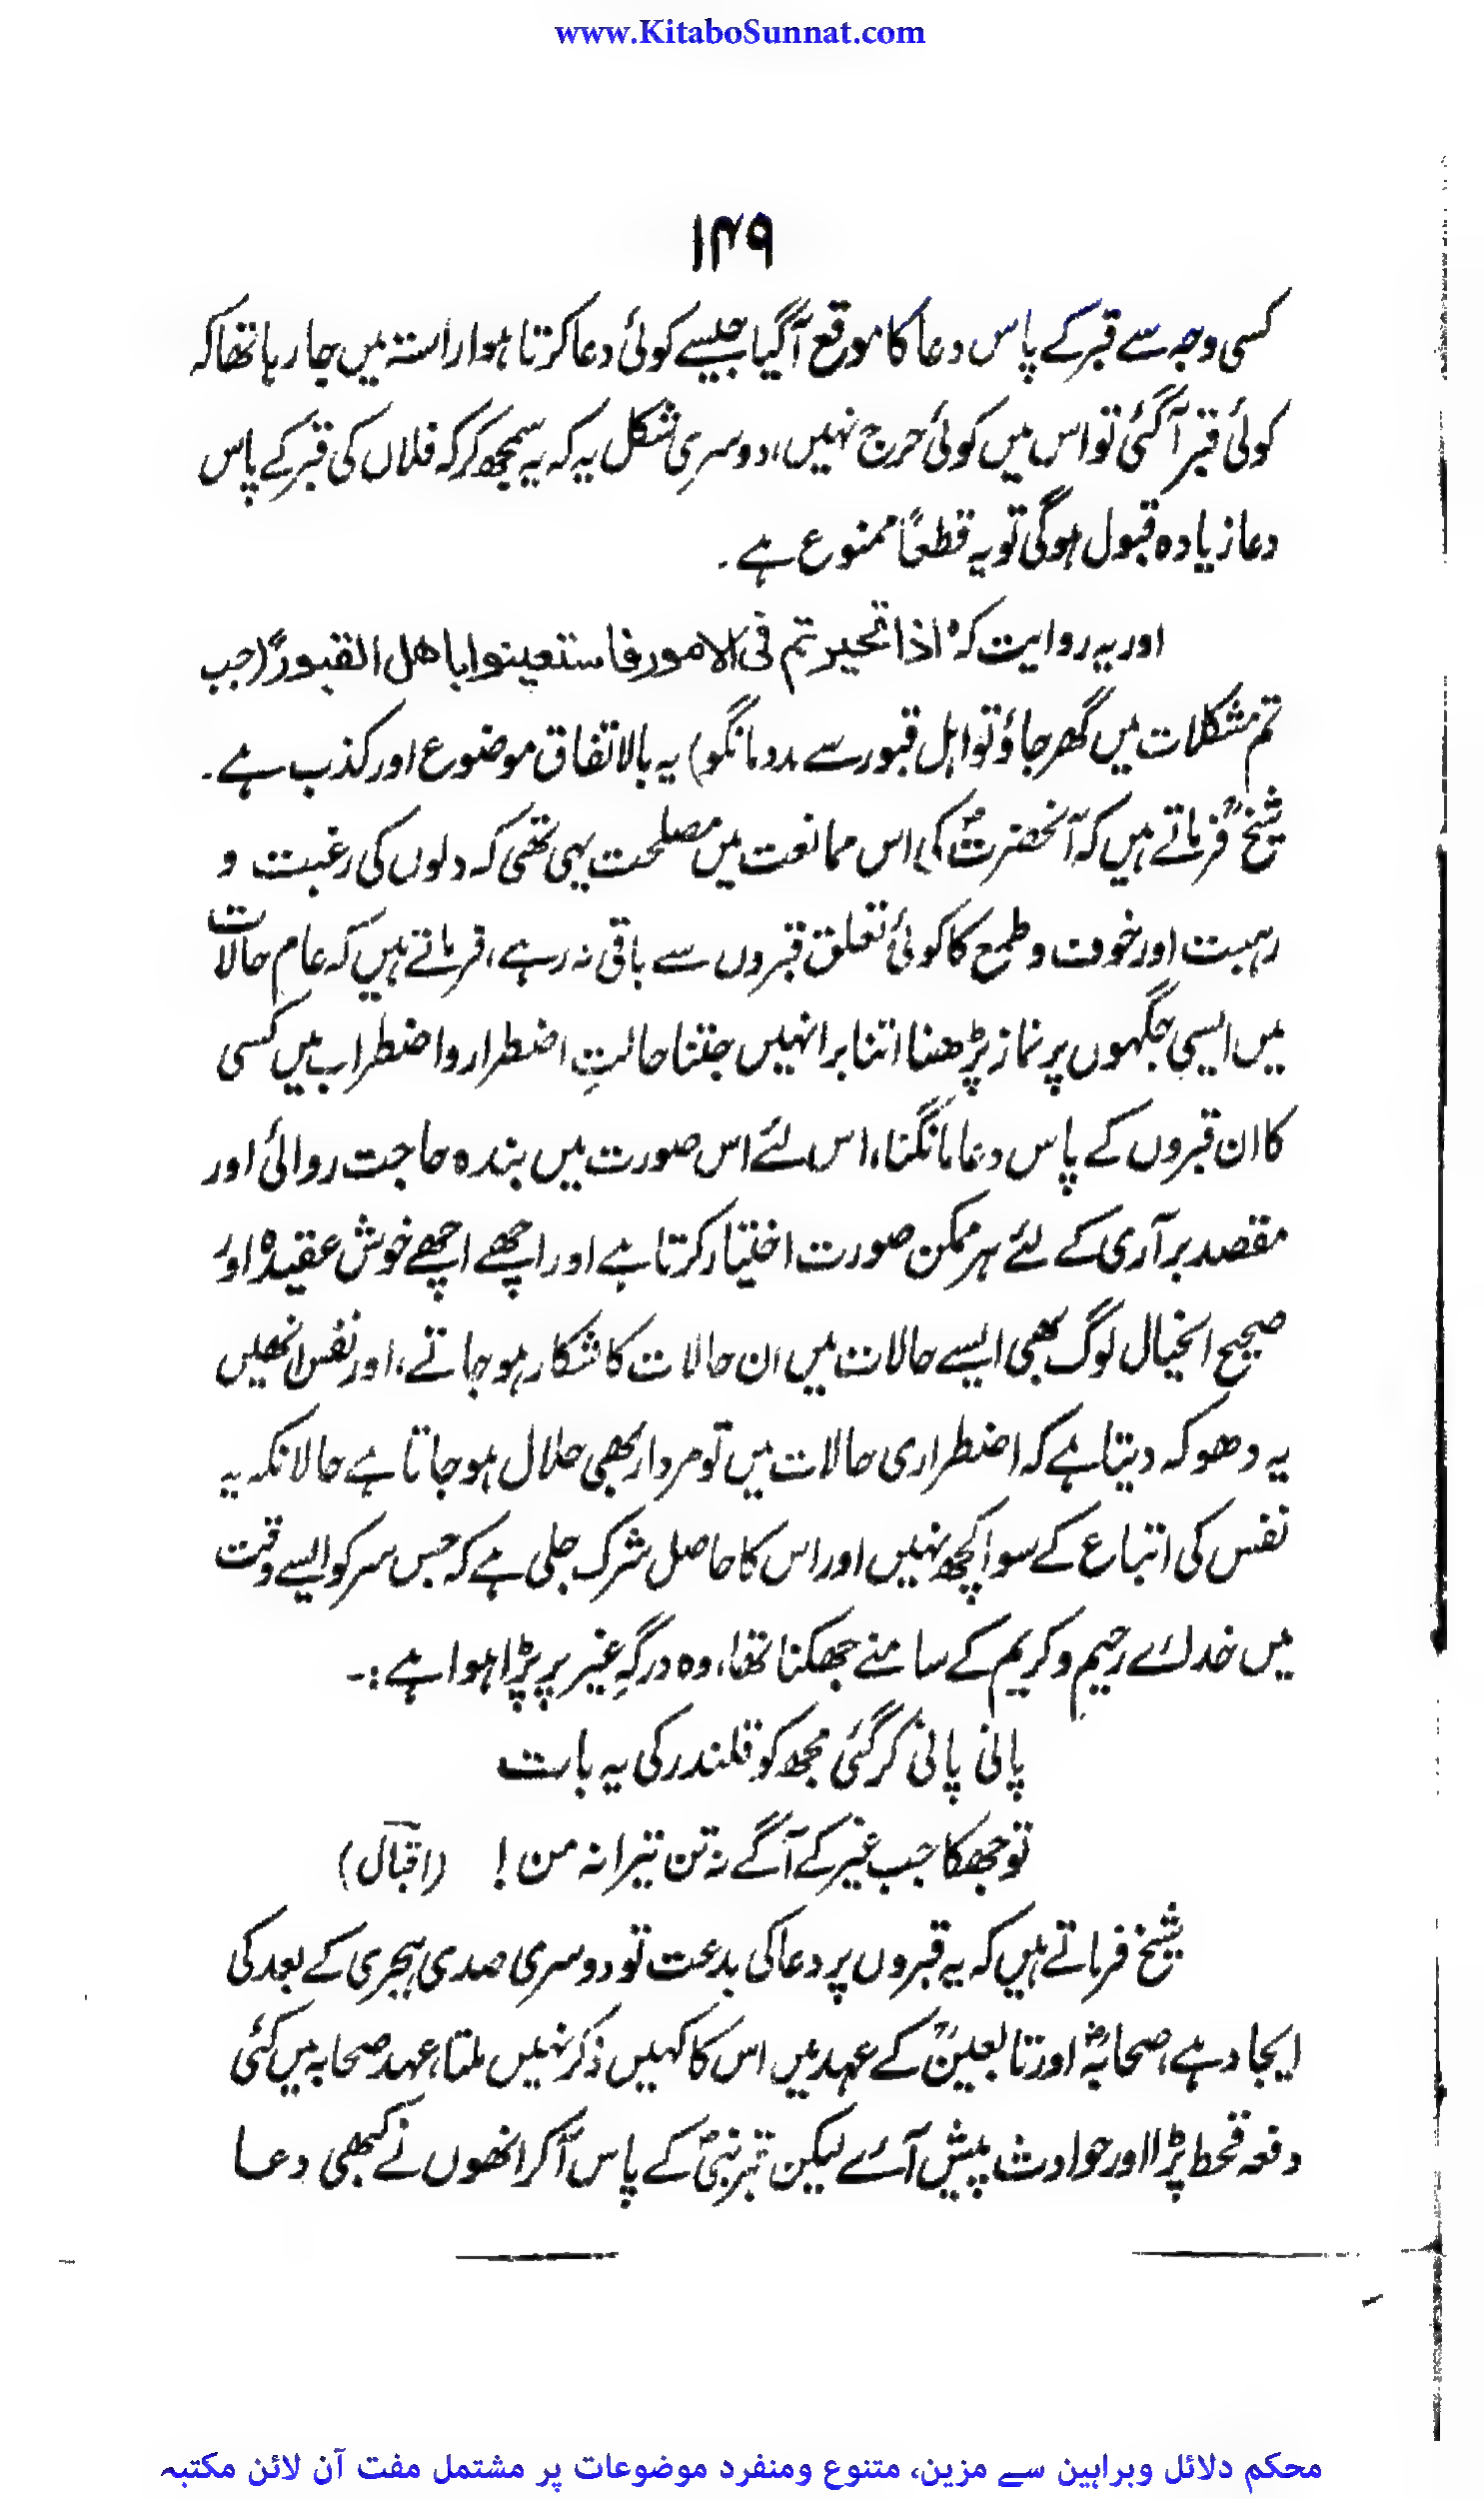 www.KitaboSunnat.com
۱۴۹
کسی وجہ سے قبر کے پاس دعا کا موقع آگیا جیسے کوئی دعا کرتا ہوا راستہ میں جا رہا تھا کہ
کوئی قبر آگئی تو اس میں کوئی حرج نہیں، دوسری شکل یہ کہ یہ سمجھ کر کہ فلاں کی قبر کے پاس
دعا زیادہ قبول ہوگی تو یہ قطعاً ممنوع ہے۔
اور یہ روایت کہ "اذا تحیرتم فی الامور فاستعینوا باھل القبور" (جب
تم مشکلات میں گھر جاؤ تو اہل قبور سے مدد مانگو) یہ بالاتفاق موضوع اور کذب ہے۔
شیخؒ فرماتے ہیں کہ آنحضرتؐ کی اس ممانعت میں مصلحت یہی تھی کہ دلوں کی رغبت و
رہبت اور خوف و طمع کا کوئی تعلق قبروں سے باقی نہ رہے، فرماتے ہیں کہ عام حالات
میں ایسی جگہوں پر نماز پڑھنا اتنا برا نہیں جتنا حالتِ اضطرار و اضطراب میں کسی
کا ان قبروں کے پاس دعا مانگنا، اس لئے اس صورت میں بندہ حاجت روائی اور
مقصد برآری کے لئے ہر ممکن صورت اختیار کرتا ہے اور اچھے اچھے خوش عقیدہ اور
صحیح الخیال لوگ بھی ایسے حالات میں ان حالات کا شکار ہو جاتے، اور نفس انھیں
یہ دھوکہ دیتا ہے کہ اضطراری حالات میں تو مردار بھی حلال ہو جاتا ہے حالانکہ یہ
نفس کی اتباع کے سوا کچھ نہیں اور اس کا حاصل شرک جلی ہے کہ جس سر کو ایسے وقت
میں خدائے رحیم و کریم کے سامنے جھکنا تھا، وہ درگہِ غیر پر پڑا ہوا ہے :۔
پانی پانی کر گئی مجھ کو قلندر کی یہ بات
تو جھکا جب غیر کے آگے نہ تن تیرا نہ من ! (اقبال)
شیخ فرماتے ہیں کہ یہ قبروں پر دعا کی بدعت تو دوسری صدی ہجری کے بعد کی
ایجاد ہے، صحابہؓ اور تابعینؒ کے عہد میں اس کا کہیں ذکر نہیں ملتا، عہد صحابہ میں کئی
دفعہ قحط پڑا اور حوادث پیش آئے لیکن قبر نبیؐ کے پاس آکر انھوں نے کبھی دعا
محکم دلائل وبراہین سے مزین، متنوع ومنفرد موضوعات پر مشتمل مفت آن لائن مکتبہ